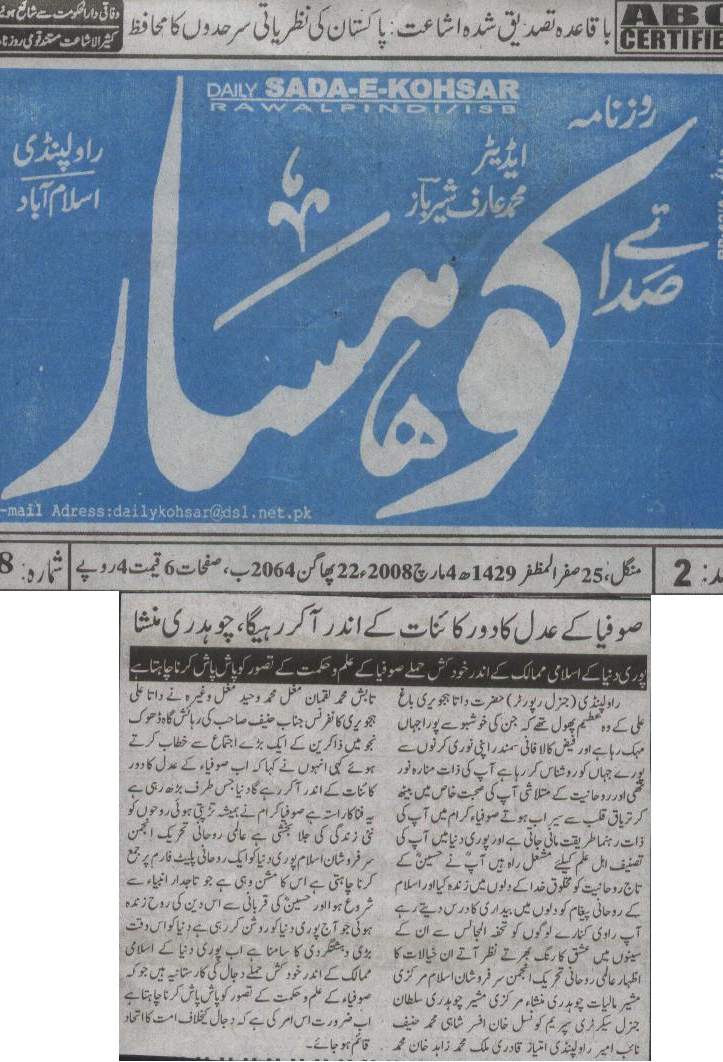 ABC
CERTIFIE
باقاعدہ تصدیق شدہ اشاعت: پاکستان کی نظریاتی سرحدوں کا محافظ
وفاقی دارالحکومت سے شائع ہونے
کثیر الاشاعت مستند قومی روزنامہ
DAILY SADA-E-KOHSAR
RAWALPINDI/ISB
روزنامہ
ایڈیٹر
محمد عارف شیرباز
راولپنڈی
اسلام آباد
صدائے
کوہسار
-mail Adress:dailykohsar@dsl.net.pk
د: 2
منگل، 25 صفر المظفر 1429ھ 4 مارچ 2008ء 22 پھاگن 2064 ب، صفحات 6 قیمت 4 روپے
شمارہ: 8
صوفیا کے عدل کا دور کائنات کے اندر آ کر رہیگا، چوہدری منشا
پوری دنیا کے اسلامی ممالک کے اندر خودکش حملے صوفیا کے علم و حکمت کے تصور کو پاش پاش کرنا چاہتا ہے
راولپنڈی (جنرل رپورٹر) حضرت داتا ہجویری باغ
علی کے وہ عظیم پھول تھے کہ جن کی خوشبو سے پورا جہاں
مہک رہا ہے اور فیض کا لافانی سمندر اپنی نوری کرنوں سے
پورے جہاں کو روشناس کر رہا ہے آپ کی ذات منارہ نور
تھی اور روحانیت کے متلاشی آپ کی صحبت خاص میں بیٹھ
کر تریاق قلب سے سیراب ہوتے صوفیاء کرام میں آپ کی
ذات رہنما طریقت مانی جاتی ہے اور پوری دنیا میں آپ کی
تصنیف اہل علم کیلئے مشعل راہ ہیں آپ نے حسینؓ کے
تاج روحانیت کو مخلوق خدا کے دلوں میں زندہ کیا اور اسلام
کے روحانی پیغام کو دلوں میں بیداری کا درس دیتے رہے
آپ راوی کنارے لوگوں کو تحفہ المجالس سے ان کے
سینوں میں عشق کا رنگ بھرتے نظر آتے ان خیالات کا
اظہار عالمی روحانی تحریک انجمن سرفروشان اسلام مرکزی
مشیر مالیات چوہدری منشاء مرکزی مشیر چوہدری سلطان
جنرل سیکرٹری سپریم کونسل خان افسر شاہی محمد حنیف
نائب امیر راولپنڈی امتیاز قادری ملک محمد زاہد خان محمد
تابش محمد لقمان مغل محمد وحید مغل وغیرہ نے داتا علی
ہجویری کانفرنس جناب حنیف صاحب کی رہائش گاہ ڈھوک
نجو میں ذاکرین کے ایک بڑے اجتماع سے خطاب کرتے
ہوئے کہی انہوں نے کہا کہ اب صوفیاء کے عدل کا دور
کائنات کے اندر آ کر رہے گا دنیا جس طرف بڑھ رہی ہے
یہ فنا کا راستہ ہے صوفیا کرام نے ہمیشہ تڑپتی ہوئی روحوں کو
نئی زندگی کی جلا بخشتی ہے عالمی روحانی تحریک انجمن
سرفروشان اسلام پوری دنیا کو ایک روحانی پلیٹ فارم پر جمع
کرنا چاہتی ہے اس کا مشن وہی ہے جو تاجدار انبیاء سے
شروع ہوا اور حسینؓ کی قربانی سے اس دین کی روح زندہ
ہوئی جو آج پوری دنیا کو روشن کر رہی ہے دنیا کو اس وقت
بڑی دہشتگردی کا سامنا ہے اب پوری دنیا کے اسلامی
ممالک کے اندر خودکش حملے دجال کی کارستانیہ ہیں جو کہ
صوفیاء کے علم و حکمت کے تصور کو پاش پاش کرنا چاہتا ہے
اب ضرورت اس امر کی ہے کہ دجال کیخلاف امت کا اتحاد
قائم ہو جائے۔